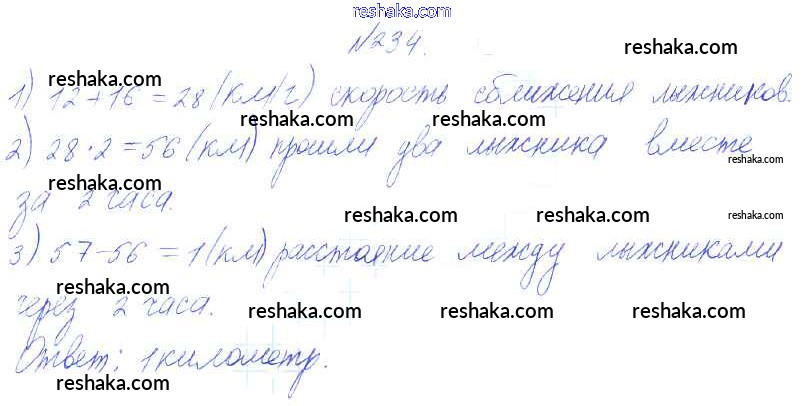 reshaka.com
№234.
reshaka.com
reshaka.com
1) 12+16=28 (км/ч) скорость сближения лыжников.
reshaka.com
reshaka.com reshaka.com
2) 28·2=56 (км) прошли два лыжника вместе
reshaka.com
за 2 часа.
reshaka.com reshaka.com reshaka.com
3) 57-56=1 (км) расстояние между лыжниками
reshaka.com
через 2 часа.
reshaka.com reshaka.com reshaka.com
Ответ: 1 километр.
reshaka.com
reshaka.com reshaka.com reshaka.com